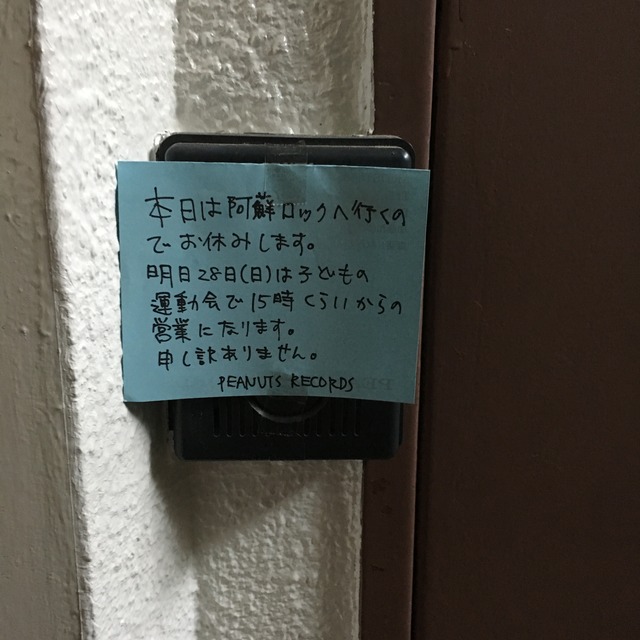 本日は阿蘇ロックへ行くの
でお休みします。
明日28日(日)は子どもの
運動会で15時くらいからの
営業になります。
申し訳ありません。
PEANUTS RECORDS